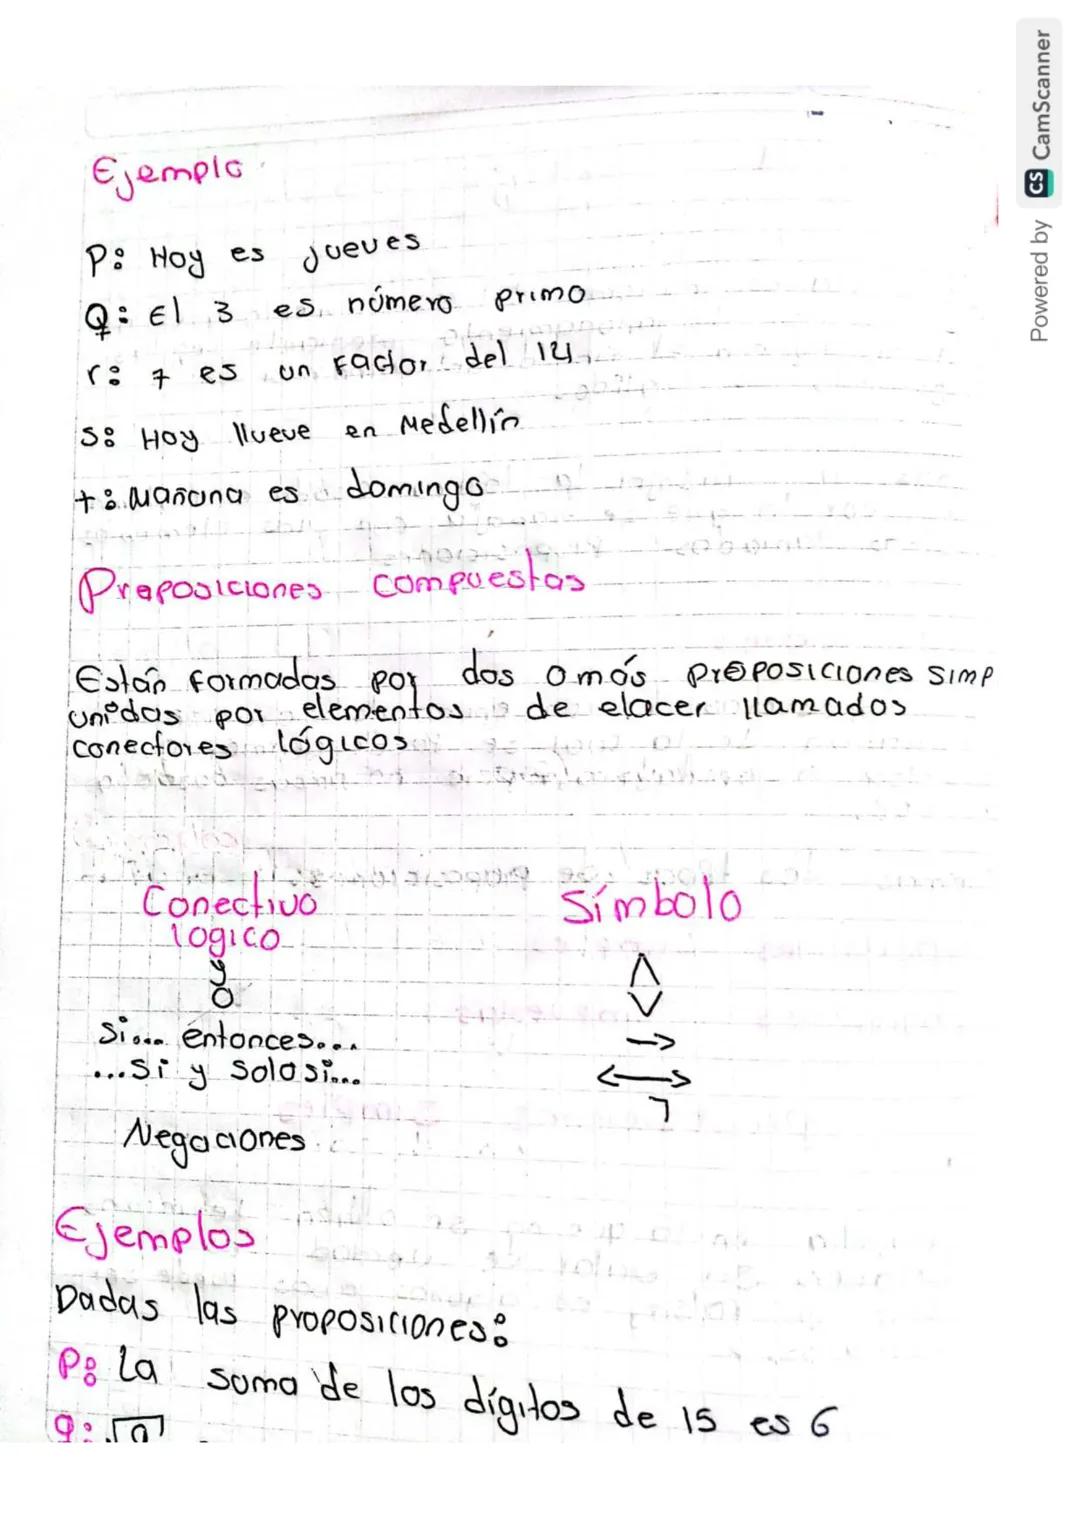 Ejemplo
P: Hoy es jueves
Q: El 3 es número primo
r: 7 es un factor del 14
S: Hoy llueve en Medellín
t: Mañana es domingo
Proposiciones compuestas
Están formadas por dos o más proposiciones simp
unidas por elementos de elacer llamados
conectores lógicos
Conectivo Símbolo
logico
y ∧
o ∨
Si... entonces... →
...Si y solo si... ↔
Negaciones ¬
Ejemplos
Dadas las proposiciones:
P: La suma de los dígitos de 15 es 6
q:
Powered by CS CamScanner